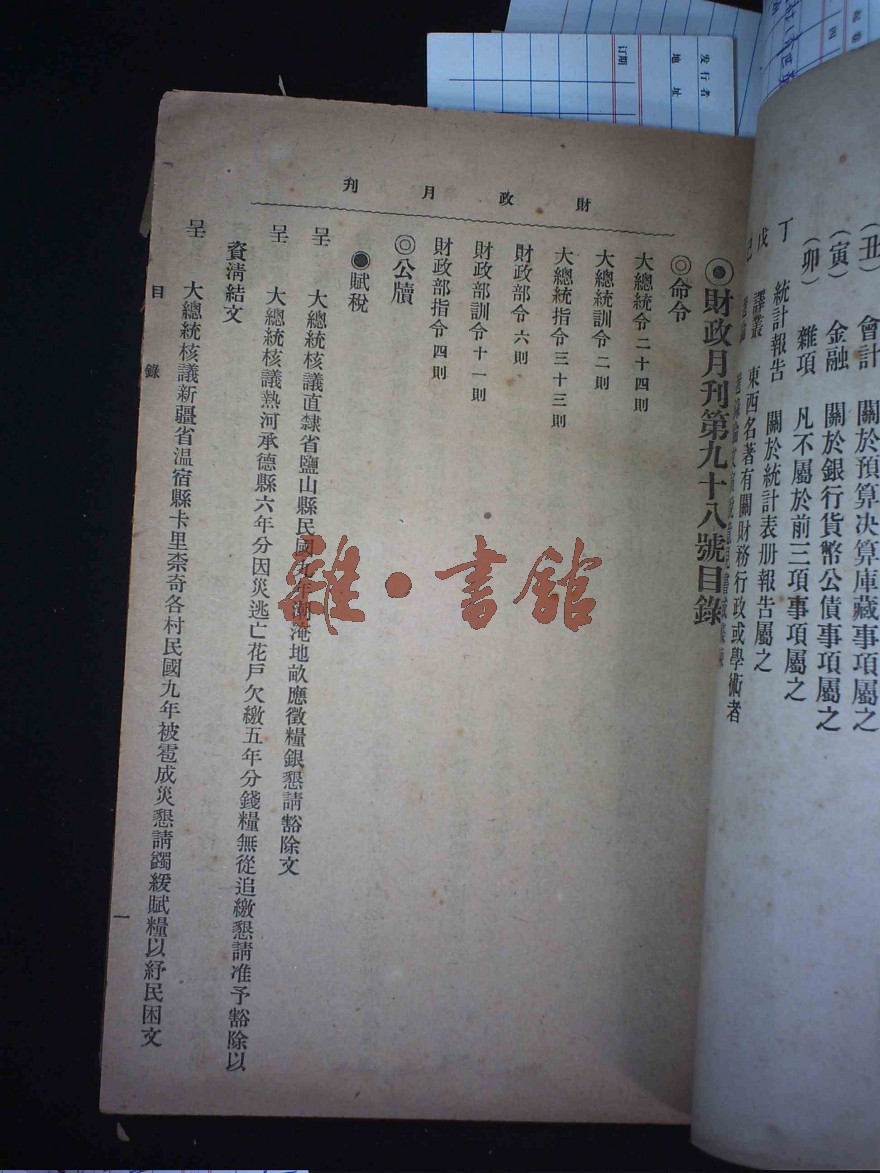 (丑) 會計 關於預算決算庫藏事項屬之
(寅) 金融 關於銀行貨幣公債事項屬之
(卯) 雜項 凡不屬於前三項事項屬之
丁 統計報告 關於統計表册報告屬之
戊 譯叢 東西名著有關財務行政或學術者
己
財政月刊
◉財政月刊第九十八號目錄
◎命令
大總統令二十四則
大總統訓令二則
大總統指令三十三則
財政部令六則
財政部訓令十一則
財政部指令四則
◎公牘
●賦稅
呈 大總統核議直隸省鹽山縣民國九年潮淹地畝應徵糧銀懇請豁除文
呈 大總統核議熱河承德縣六年分因災逃亡花戶欠繳五年分錢糧無從追繳懇請准予豁除以
資淸結文
呈 大總統核議新疆省温宿縣卡里柰奇各村民國九年被雹成災懇請蠲緩賦糧以紓民困文
目錄
一
雜·書館
发行者
地址
订期